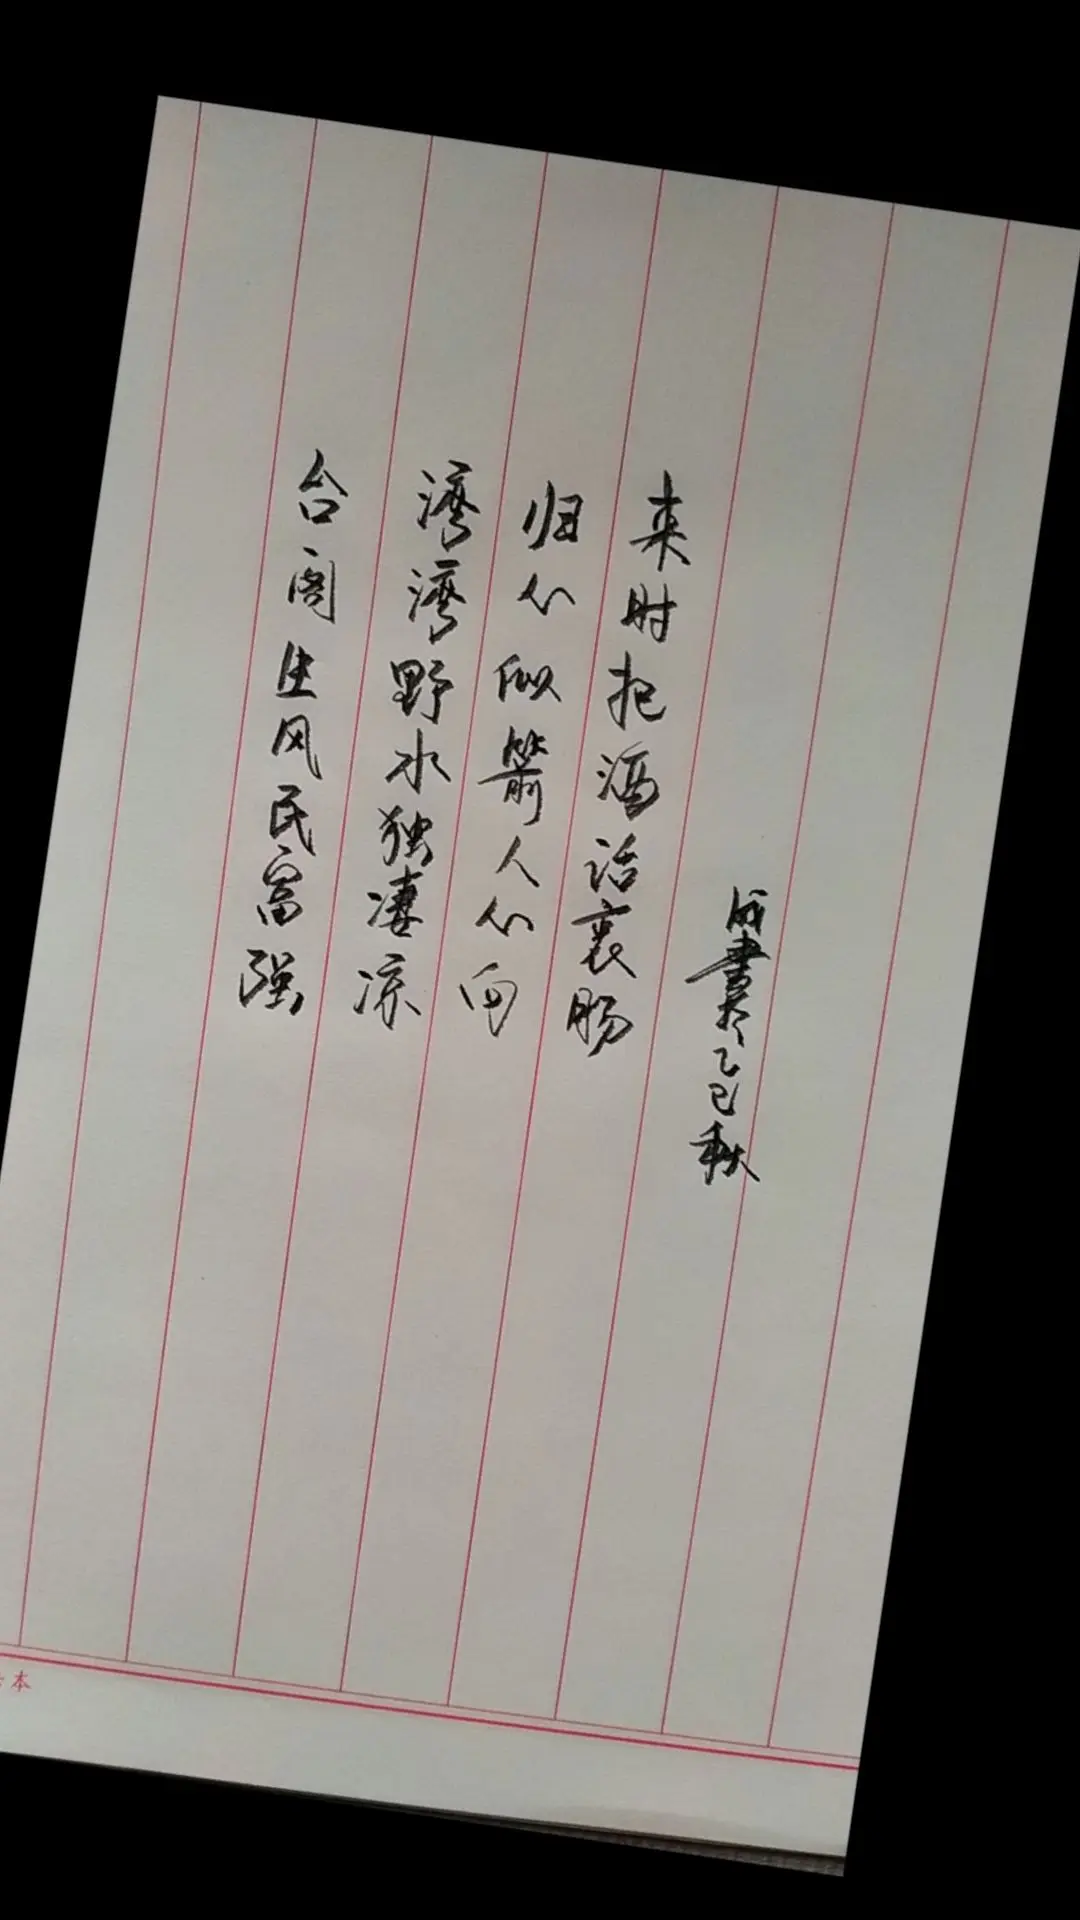 台阁生风民富强
湾湾野水独凄凉
归心似箭人心向
来时把酒话衷肠
成書於乙巳秋
本